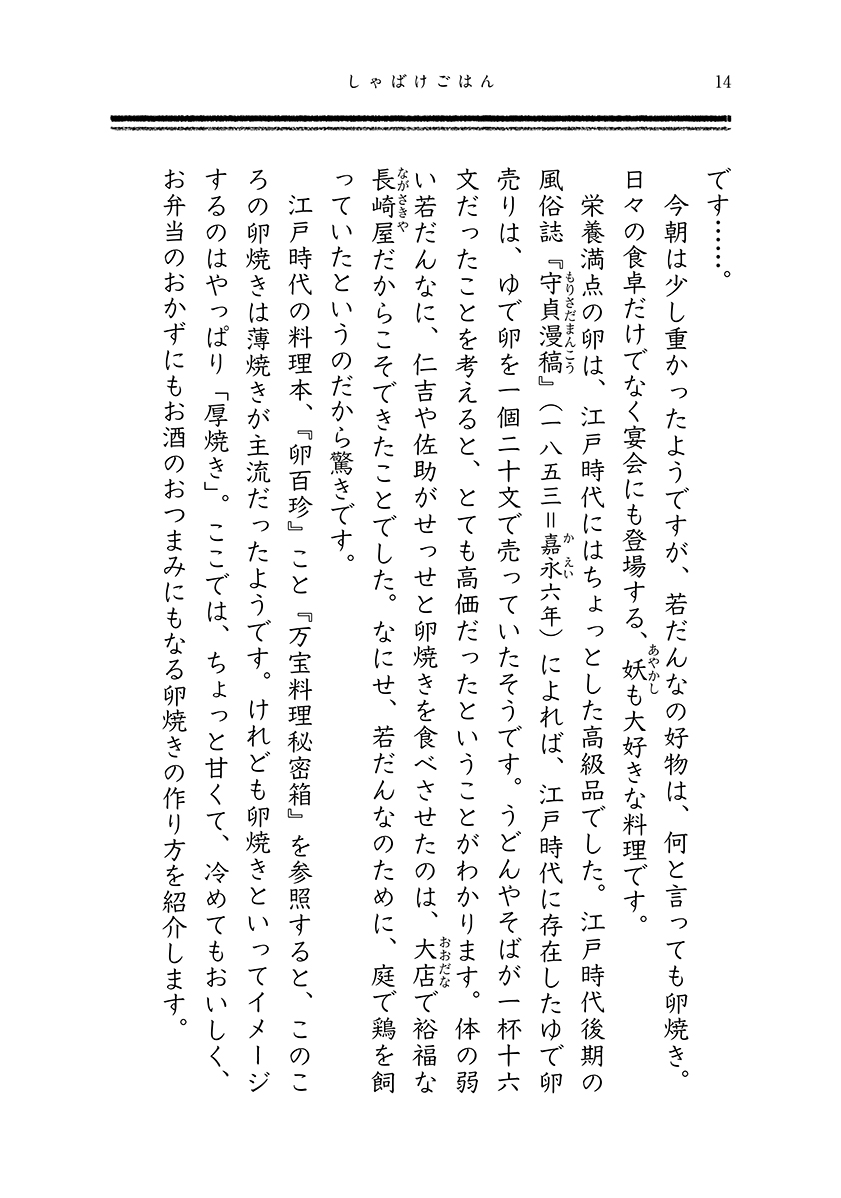 しゃばけごはん
14
です……。
今朝は少し重かったようですが、若だんなの好物は、何と言っても卵焼き。
日々の食卓だけでなく宴会にも登場する、妖も大好きな料理です。
あやかし
栄養満点の卵は、江戸時代にはちょっとした高級品でした。江戸時代後期の
風俗誌『守貞漫稿』（一八五三＝嘉永六年）によれば、江戸時代に存在したゆで卵
もりさだまんこう
かえい
売りは、ゆで卵を一個二十文で売っていたそうです。うどんやそばが一杯十六
文だったことを考えると、とても高価だったということがわかります。体の弱
い若だんなに、仁吉や佐助がせっせと卵焼きを食べさせたのは、大店で裕福な
おおだな
長崎屋だからこそできたことでした。なにせ、若だんなのために、庭で鶏を飼
ながさきや
っていたというのだから驚きです。
江戸時代の料理本、『卵百珍』こと『万宝料理秘密箱』を参照すると、このこ
ろの卵焼きは薄焼きが主流だったようです。けれども卵焼きといってイメージ
するのはやっぱり「厚焼き」。ここでは、ちょっと甘くて、冷めてもおいしく、
お弁当のおかずにもお酒のおつまみにもなる卵焼きの作り方を紹介します。